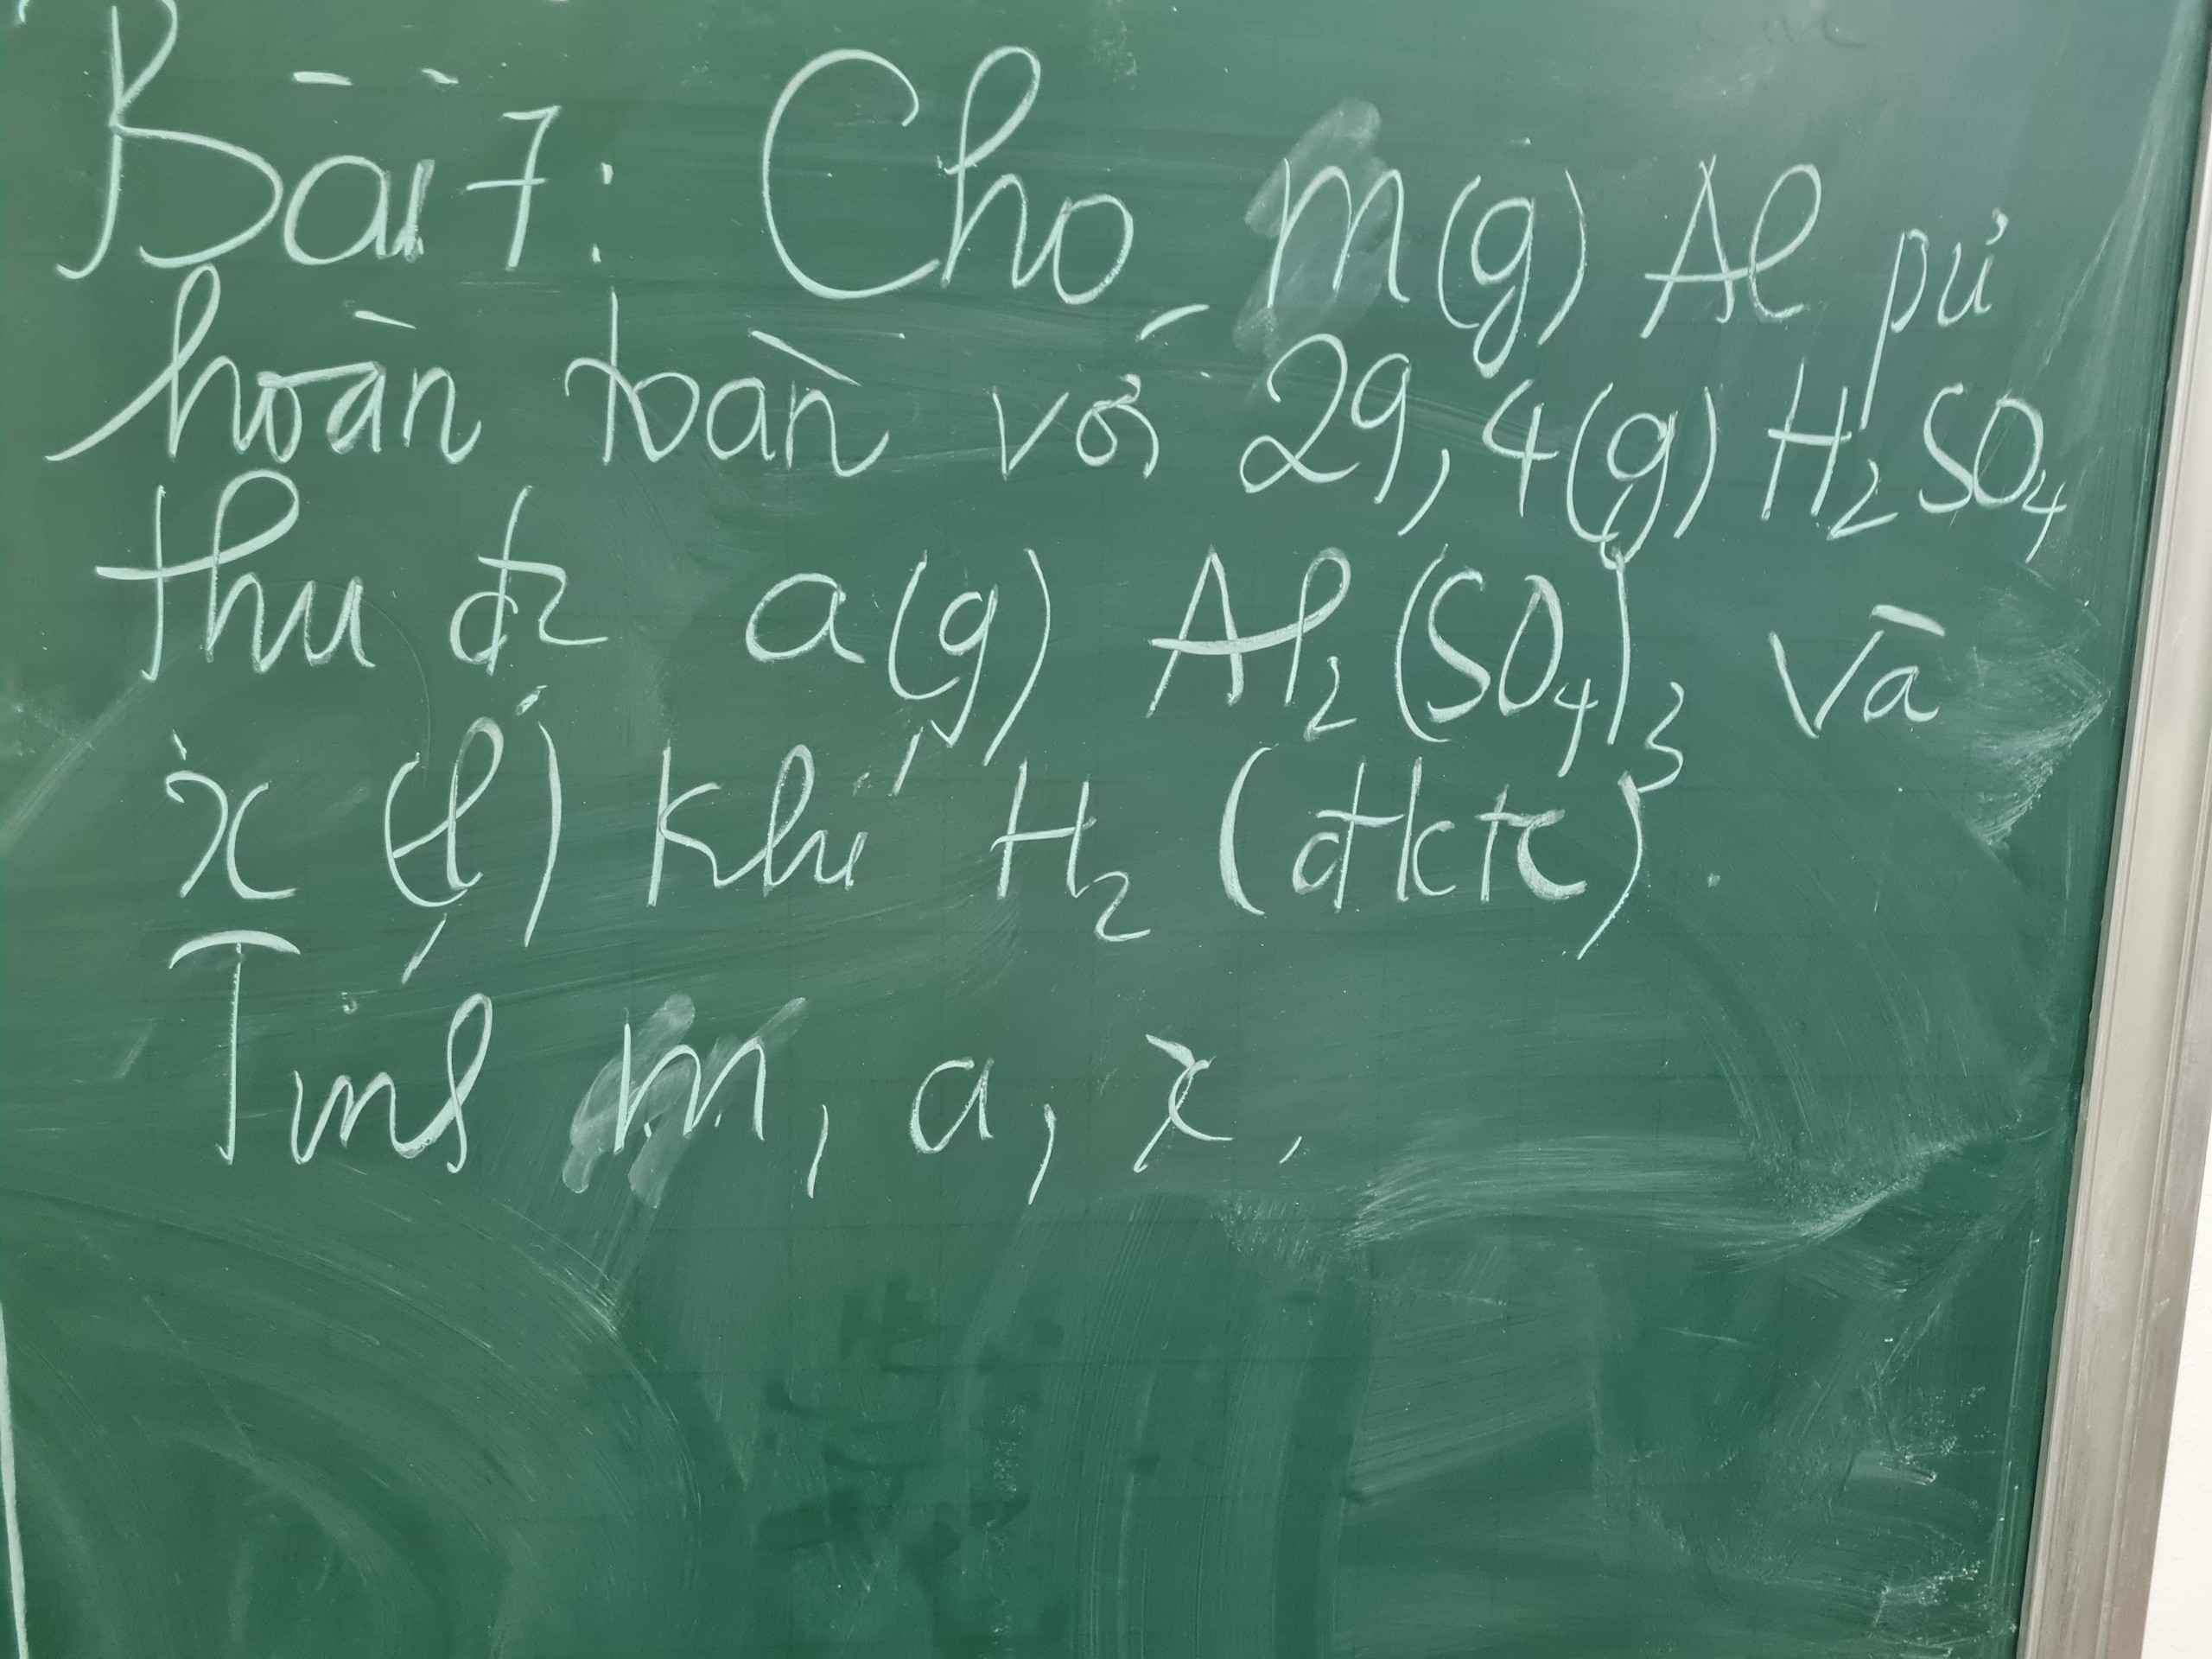 Bài 7: Cho m(g) Al pứ
hoàn toàn với 29,4(g) H₂SO₄
thu đc a(g) Al₂(SO₄)₃ và
x (l) khí H₂ (đktc).
Tính m, a, x.